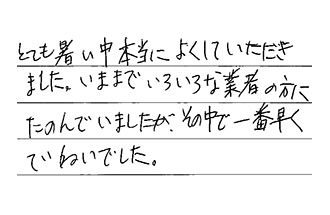 とても暑い中本当によくしていただき
ました。いままでいろいろな業者の方に
たのんでいましたが、その中で一番早く
ていねいでした。